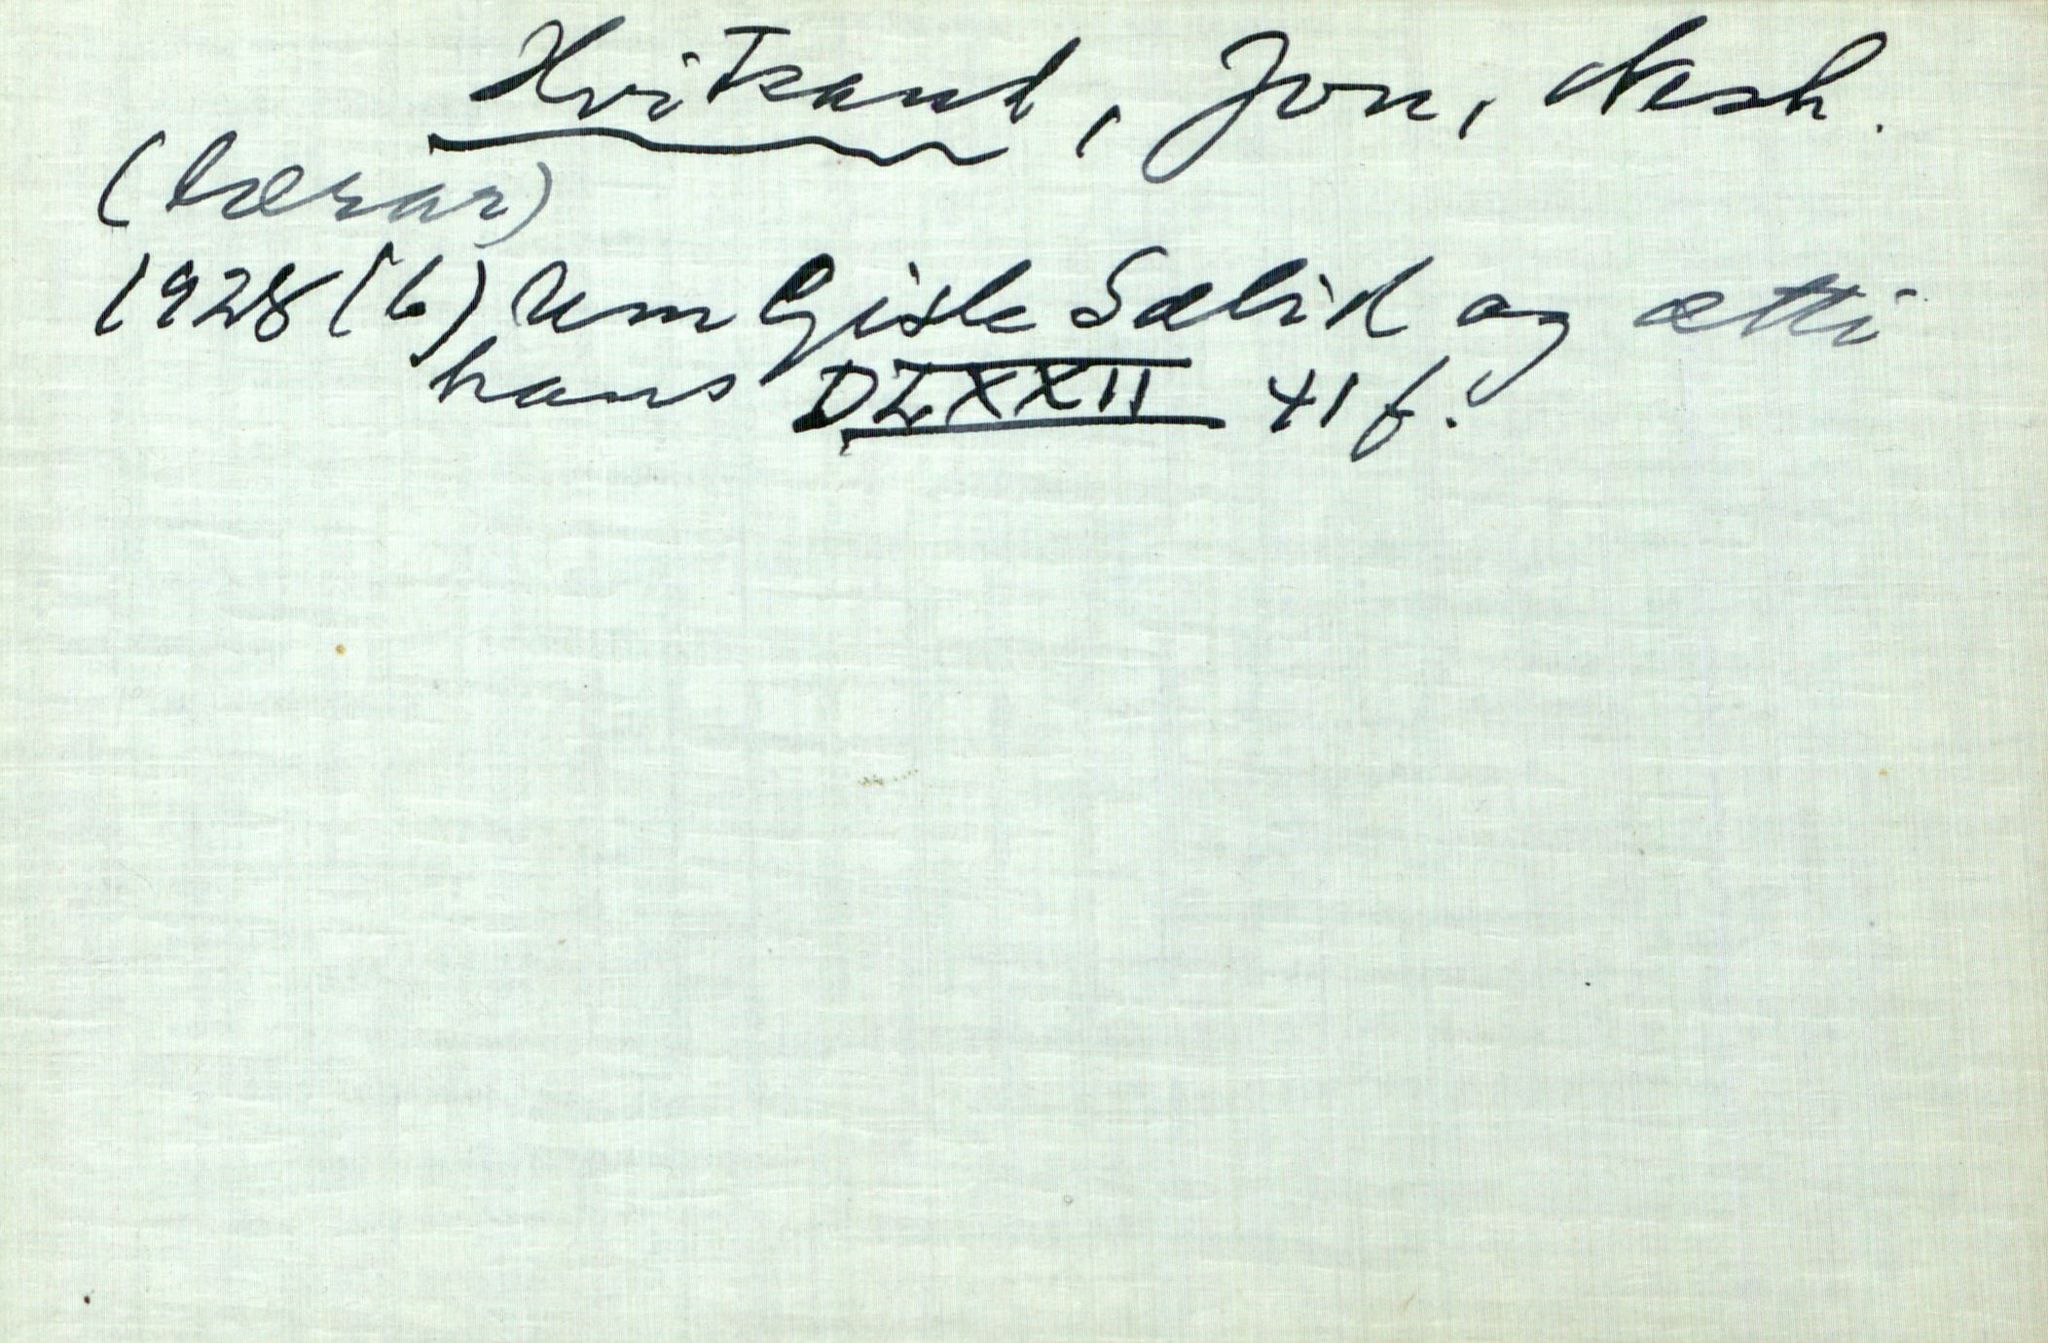 Kvitsand, Jon, Nesh.
(lærar)
1928 (b) Um Gisle Sælid og ætti
hans DLXXII 41 f.